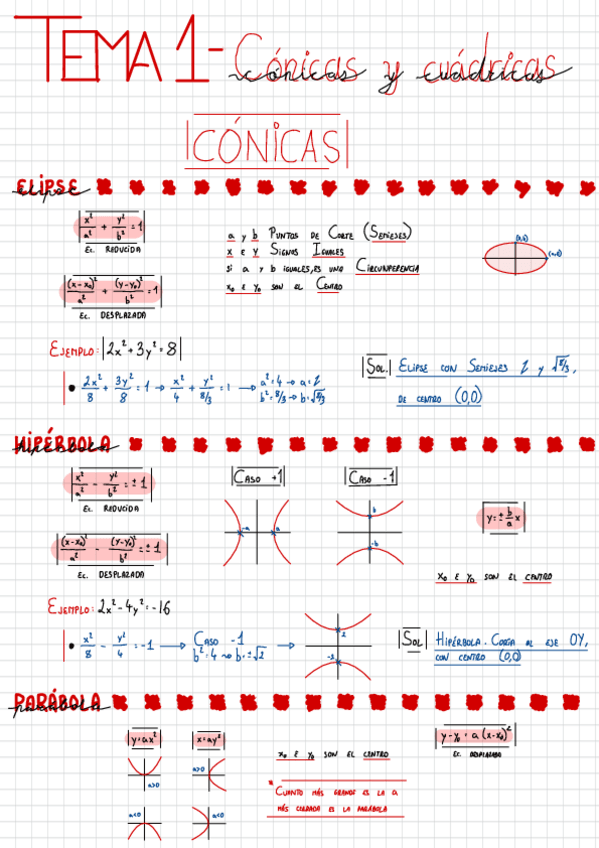 TEMA 1 - Cónicas y cuádricas
cónicas y cuádricas
CÓNICAS
ELIPSE
elipse
x²/a² + y²/b² = 1
Ec. REDUCIDA
(x-x₀)²/a² + (y-y₀)²/b² = 1
Ec. DESPLAZADA
a y b PUNTOS DE CORTE (SEMIEJES)
x E y SIGNOS IGUALES
SI a y b IGUALES, ES UNA CIRCUNFERENCIA
x₀ E y₀ SON EL CENTRO
EJEMPLO: 2x² + 3y² = 8
• 2x²/8 + 3y²/8 = 1 → x²/4 + y²/8/3 = 1 → a² = 4 → a = 2
b² = 8/3 → b = √8/3
SOL. ELIPSE CON SEMIEJES 2 y √8/3,
DE CENTRO (0,0)
HIPÉRBOLA
hipérbola
x²/a² - y²/b² = ± 1
Ec. REDUCIDA
(x-x₀)²/a² - (y-y₀)²/b² = ± 1
Ec. DESPLAZADA
CASO +1
-a a
CASO -1
b
-b
y = ± b/a x
x₀ E y₀ SON EL CENTRO
EJEMPLO: 2x² - 4y² = -16
• x²/8 - y²/4 = -1 → CASO -1
b² = 4 → b = ±√2
2
-2
SOL HIPÉRBOLA. CORTA AL EJE OY,
CON CENTRO (0,0)
PARÁBOLA
parábola
y = ax²
a>0
a<0
x = ay²
a>0
a<0
x₀ E y₀ SON EL CENTRO
* CUANTO MÁS GRANDE ES LA a
MÁS CERRADA ES LA PARÁBOLA
y-y₀ = a (x-x₀)²
Ec. DESPLAZADA